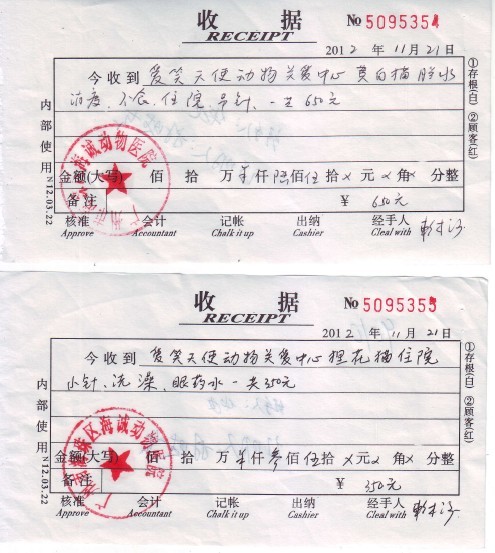 收 据 № 5095354
RECEIPT
2012 年 11 月 21 日
今收到 爱笑天使动物关爱中心 黄白猫 腹水
治疗、住院、一共650元
金额(大写) 佰 拾 万 仟 陆佰伍拾 元 角 分整
备 注 ¥ 650元
核准 会计 记帐 出纳 经手人
Approve Accountant Chalk it up Cashier Cleal with
内部使用
N12.03.22
①存根(白) ②顾客(红)
海诚动物医院
收 据 № 5095355
RECEIPT
2012 年 11 月 21 日
今收到 爱笑天使动物关爱中心 狸花猫住院
小针、洗澡、眼药水一共350元
金额(大写) 佰 拾 万 仟 叁佰伍拾 元 角 分整
备 注 ¥ 350元
核准 会计 记帐 出纳 经手人
Approve Accountant Chalk it up Cashier Cleal with
内部使用
N12.03.22
①存根(白) ②顾客(红)
广州市海珠区海诚动物医院